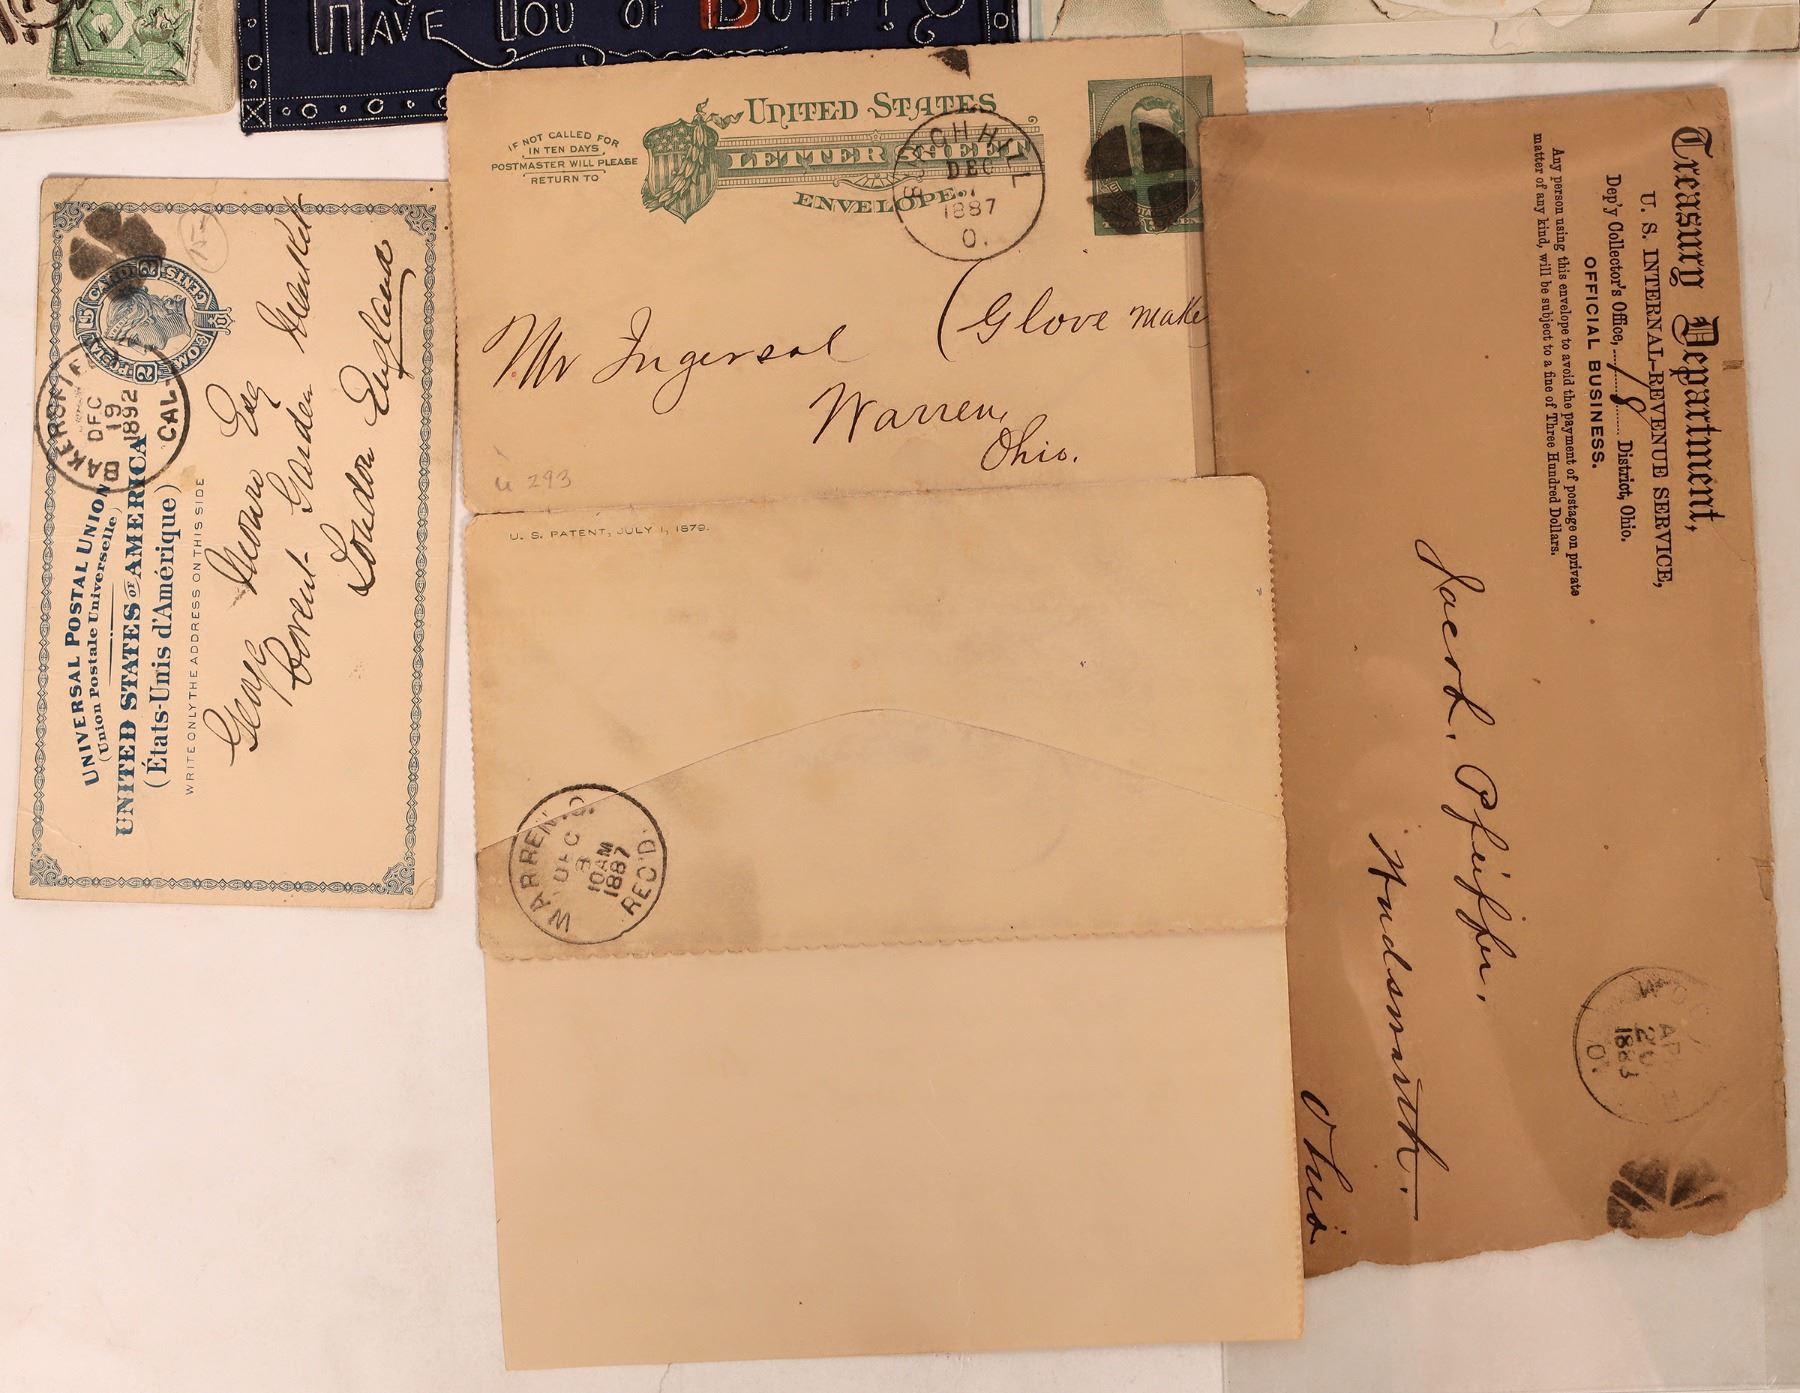 HAVE YOU OF BOTH?
UNIVERSAL POSTAL UNION
(Union Postale Universelle)
UNITED STATES OF AMERICA
(États-Unis d'Amérique)
WRITE ONLY THE ADDRESS ON THIS SIDE
POSTAL CARD
TWO CENTS
2
2
BAKERSFIE
DEC
19
1892
CAL
15
George Monro Esq
Covent Garden Market
London England
IF NOT CALLED FOR
IN TEN DAYS,
POSTMASTER WILL PLEASE
RETURN TO
UNITED STATES
LETTER SHEET
ENVELOPE.
BEACH HILL
DEC
1887
O.
Mr Ingersol (Glove make
Warren,
Ohio.
u 293
U. S. PATENT, JULY 1, 1879.
WARREN, O.
DEC
8
10AM
1887
REC'D.
Treasury Department,
U. S. INTERNAL-REVENUE SERVICE,
Dep'y Collector's Office, 18 District, Ohio.
OFFICIAL BUSINESS.
Any person using this envelope to avoid the payment of postage on private
matter of any kind, will be subject to a fine of Three Hundred Dollars.
1883
O.
Jacob. Pfeiffer.
Wadsworth.
Ohio